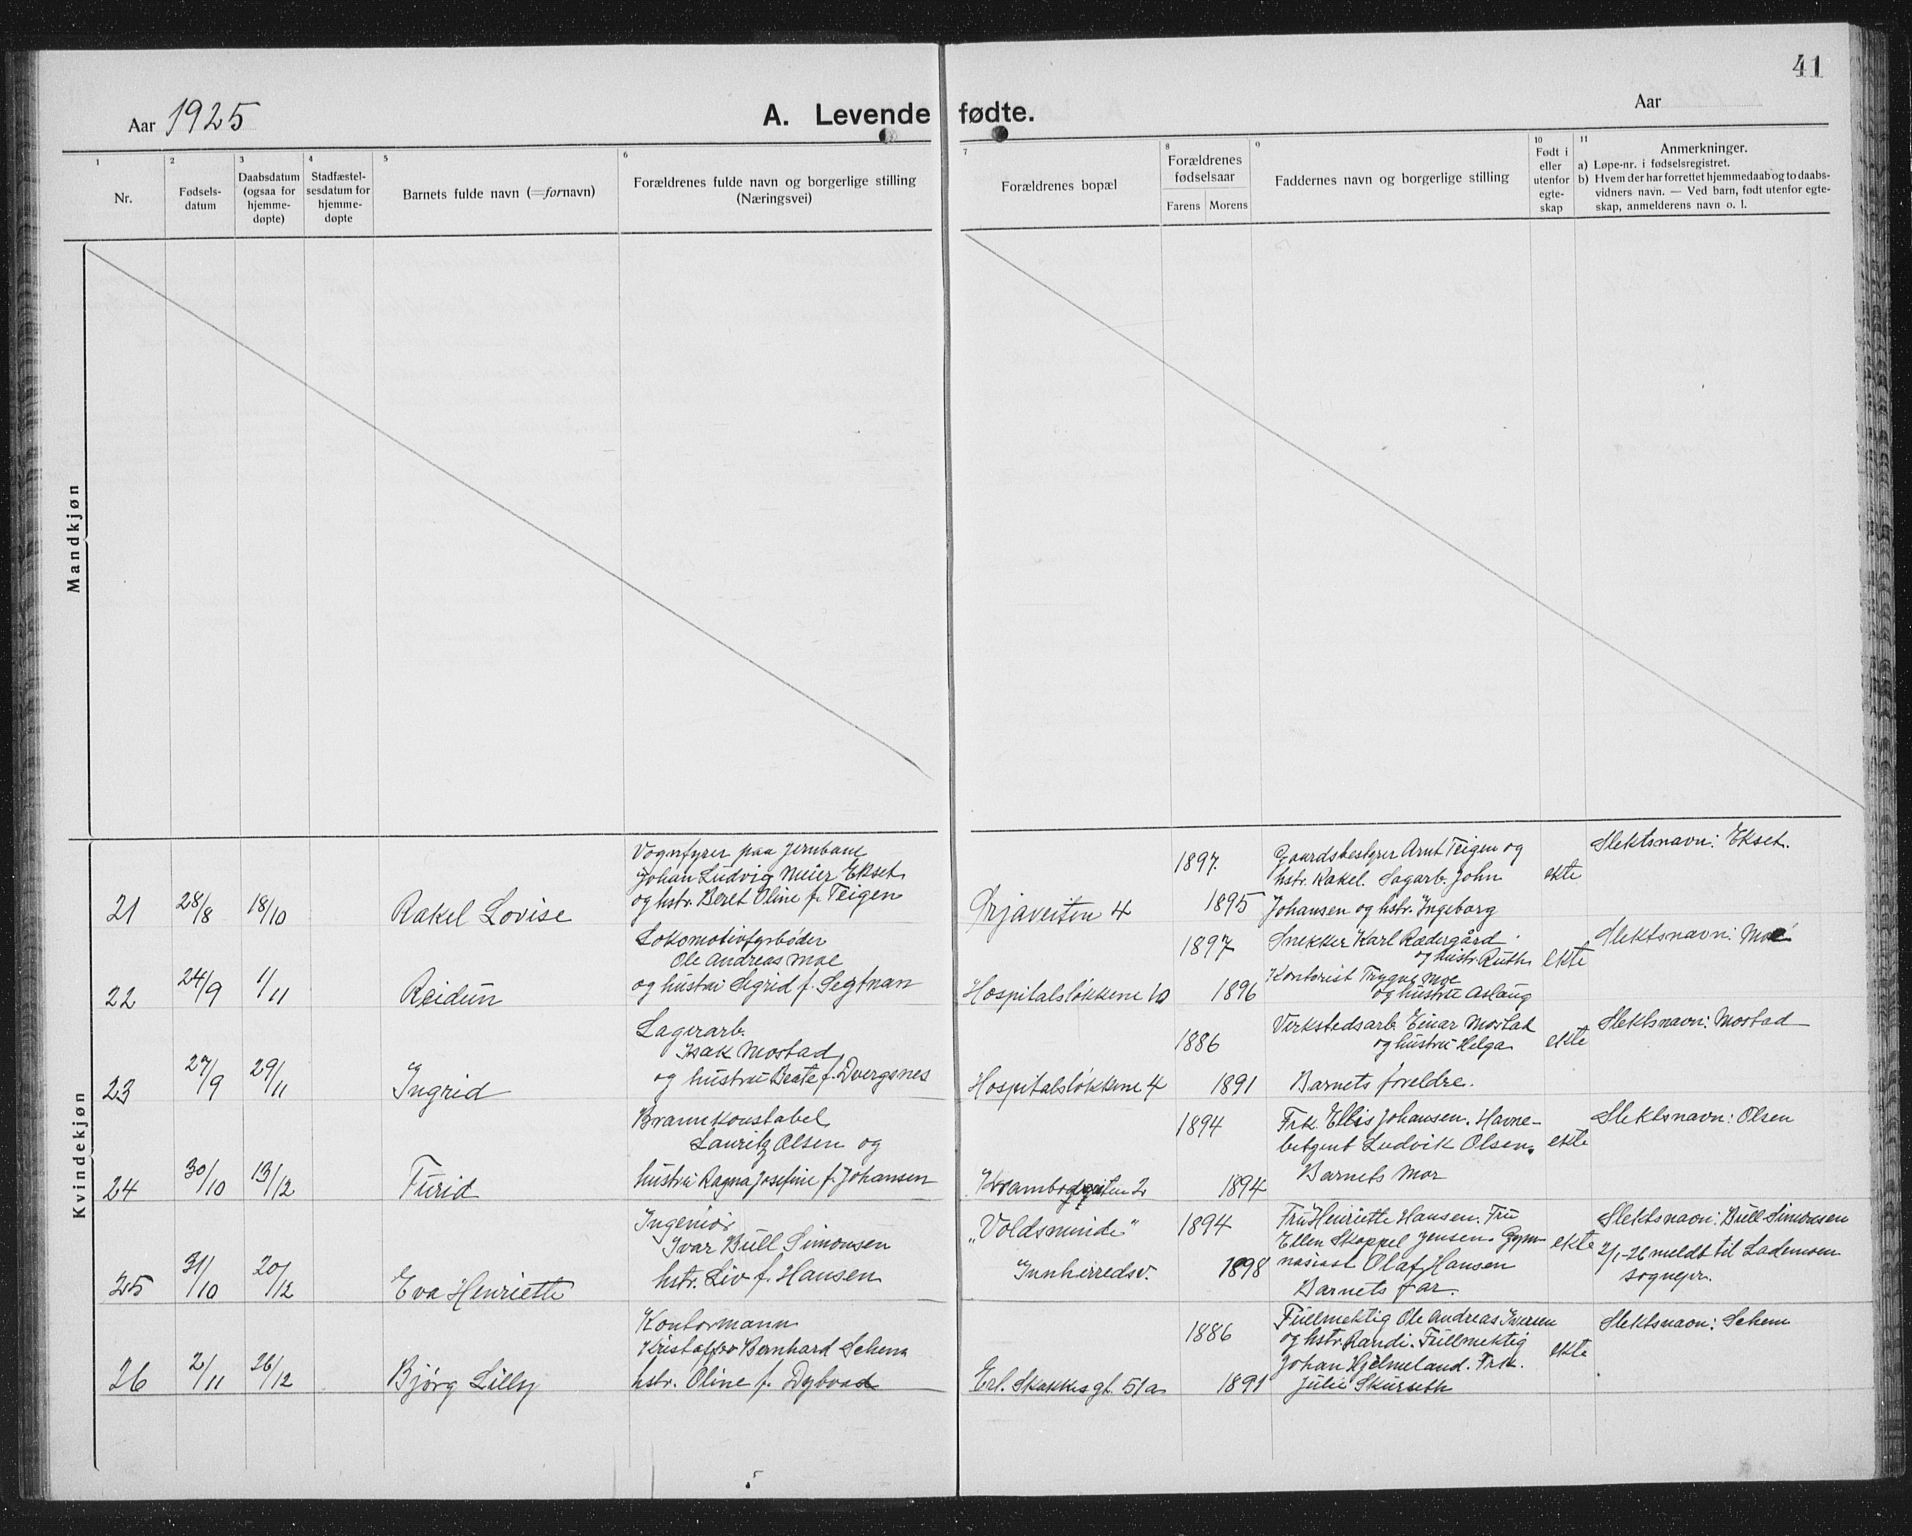 41
Aar 1925
A. Levende fødte.
Aar
1
Nr.
2
Fødsels-
datum
3
Daabsdatum
(ogsaa for
hjemme-
døpte)
4
Stadfæstel-
sesdatum for
hjemme-
døpte
5
Barnets fulde navn (=fornavn)
6
Forældrenes fulde navn og borgerlige stilling
(Næringsvei)
7
Forældrenes bopæl
8
Forældrenes
fødselsaar
Farens Morens
9
Faddernes navn og borgerlige stilling
10
Født i
eller
utenfor
egte-
skap
11
Anmerkninger.
a) Løpe-nr. i fødselsregistret.
b) Hvem der har forrettet hjemmedaab og to daabs-
vidners navn. — Ved barn, født utenfor egte-
skap, anmelderens navn o. l.
Mandkjøn
Kvindekjøn
21 28/8 18/10 Rakel Lovise
Vognfyrer paa Jernbane
Johan Ludvig Meier Ekset
og hstr. Beret Oline f. Teigen
4
1897. 1895
Gaardsbestyrer Arnt Teigen og
hstr. Rakel. Sagarb. John
Johansen og hstr. Ingeborg
ekte
Slektsnavn: Ekset.
22 24/9 1/11 Reidun
Lokomotivfyrbøder
Ole Andreas Moe
og hustru Sigrid f. Segtnan
Hospitalsløkkene 10
1897 1896
Snekker Karl Rødergård
og hustr. Ruth
Kontorist Trygve Moe
og hustru Aslaug
ekte
Slektsnavn: Moe
23 27/9 29/11 Ingrid
Lagerarb.
Isak Mostad
og hustru Beate f. Dvergsnes
Hospitalsløkkene 4
1886 1891
Verkstedsarb. Einar Mostad
og hustru Helga
Barnets foreldre.
ekte
Slektsnavn: Mostad
24 30/10 13/12 Turid
Brannkonstabel
Lauritz Olsen og
hustru Ragna Josefine f. Johansen
2
1894 1894
Frk Ellis Johansen. Havne-
betjent Ludvik Olsen.
Barnets mor
ekte
Slektsnavn: Olsen
25 31/10 20/12 Eva Henriette
Ingeniør
Ivar Bull Simonsen
hstr. Liv f. Hansen
„Voldsminde"
Innherredsv.
1894 1898
Fru Henriette Hansen. Fru
Ellen Skappel Jensen. Gym-
nasiast Olaf Hansen
Barnets far.
ekte
Slektsnavn: Bull-Simonsen
2/1-26 meldt til Lademoen
sognepr.
26 2/11 26/12 Bjørg Lilly
Kontormann
Kristoffer Bernhard Schem
hstr. Oline f. Dybvad
Erl. Skakkes gt. 51a
1886 1891
Fullmektig Ole Andreas Iversen
og hstr. Randi. Fullmektig
Johan Hjelmeland. Frk.
Julie Skurseth
ekte
Slektsnavn: Schem